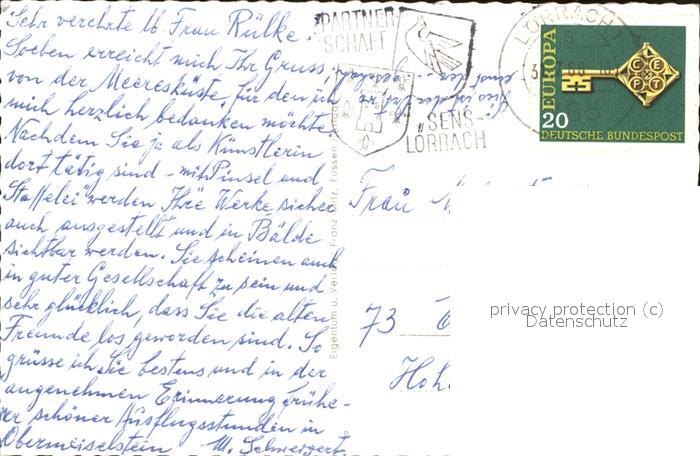 Sehr verehrte lb. Frau Rülke.
Soeben erreicht mich Ihr Gruss,
von der Meeresküste, für den ich
mich herzlich bedanken möchte.
Nachdem Sie ja als Künstlerin
dort tätig sind - mit Pinsel und
Staffelei werden Ihre Werke sicher
auch ausgestellt und in Bälde
sichtbar werden. Sie scheinen auch
in guter Gesellschaft zu sein und
sehr glücklich, dass Sie die alten
Freunde los geworden sind. So
grüsse ich Sie bestens und in der
angenehmen Erinnerung frühe-
rer schöner Ausflugsstunden in
Obermeiselstein M. Schweigert
PARTNER
SCHAFT
SENS
LÖRRACH
LÖRRACH
EUROPA
CEPT
20
DEUTSCHE BUNDESPOST
Eigentum u. Verlag: Franz Milz, Füssen
Frau
73
Hoh
privacy protection (c)
Datenschutz